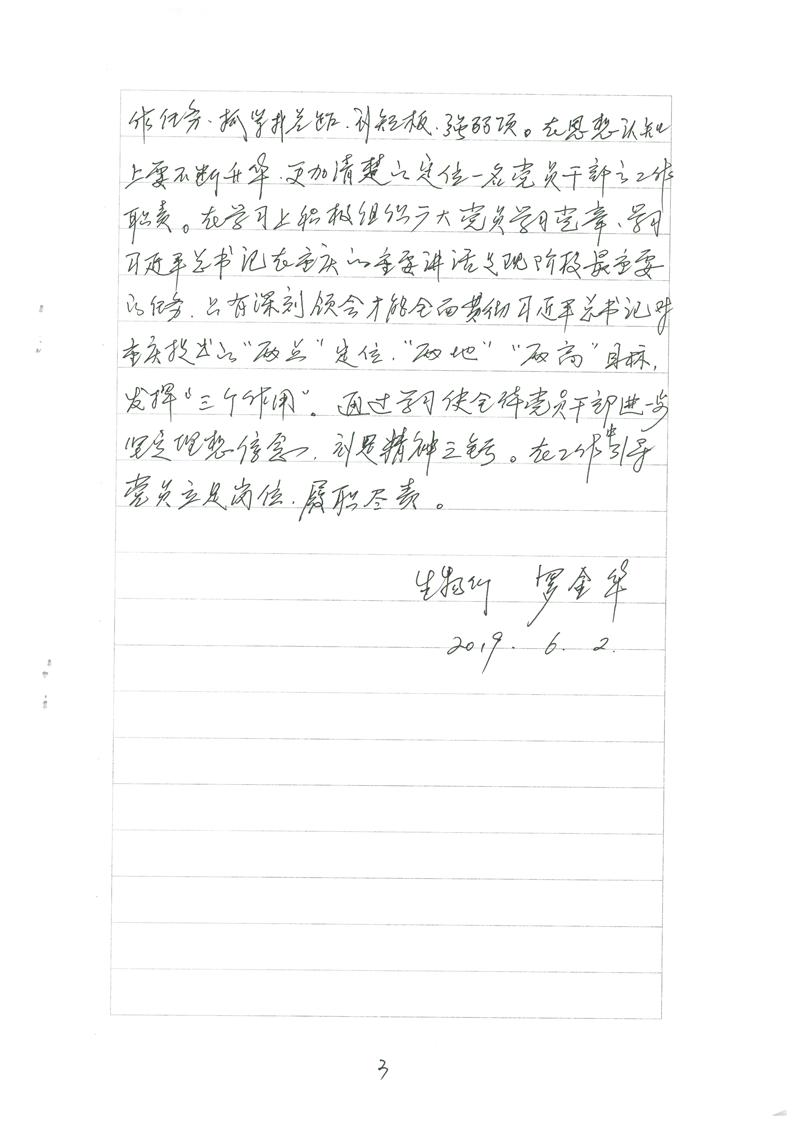 作任务、抓学找差距、补短板、强弱项。在思想认知
上要不断升华，更加清楚的定位一名党员干部之工作
职责。在学习上积极组织广大党员学习党章、学习
习近平总书记在重庆的重要讲话是现阶段最重要
的任务，只有深刻领会才能全面贯彻习近平总书记对
重庆提出的“两点”定位，“两地”“两高”目标，
发挥“三个作用”。通过学习使全体党员干部进一步
坚定理想信念，补足精神之钙。在工作中引导
党员立足岗位、履职尽责。
生物所 罗金华
2019. 6. 2.
3